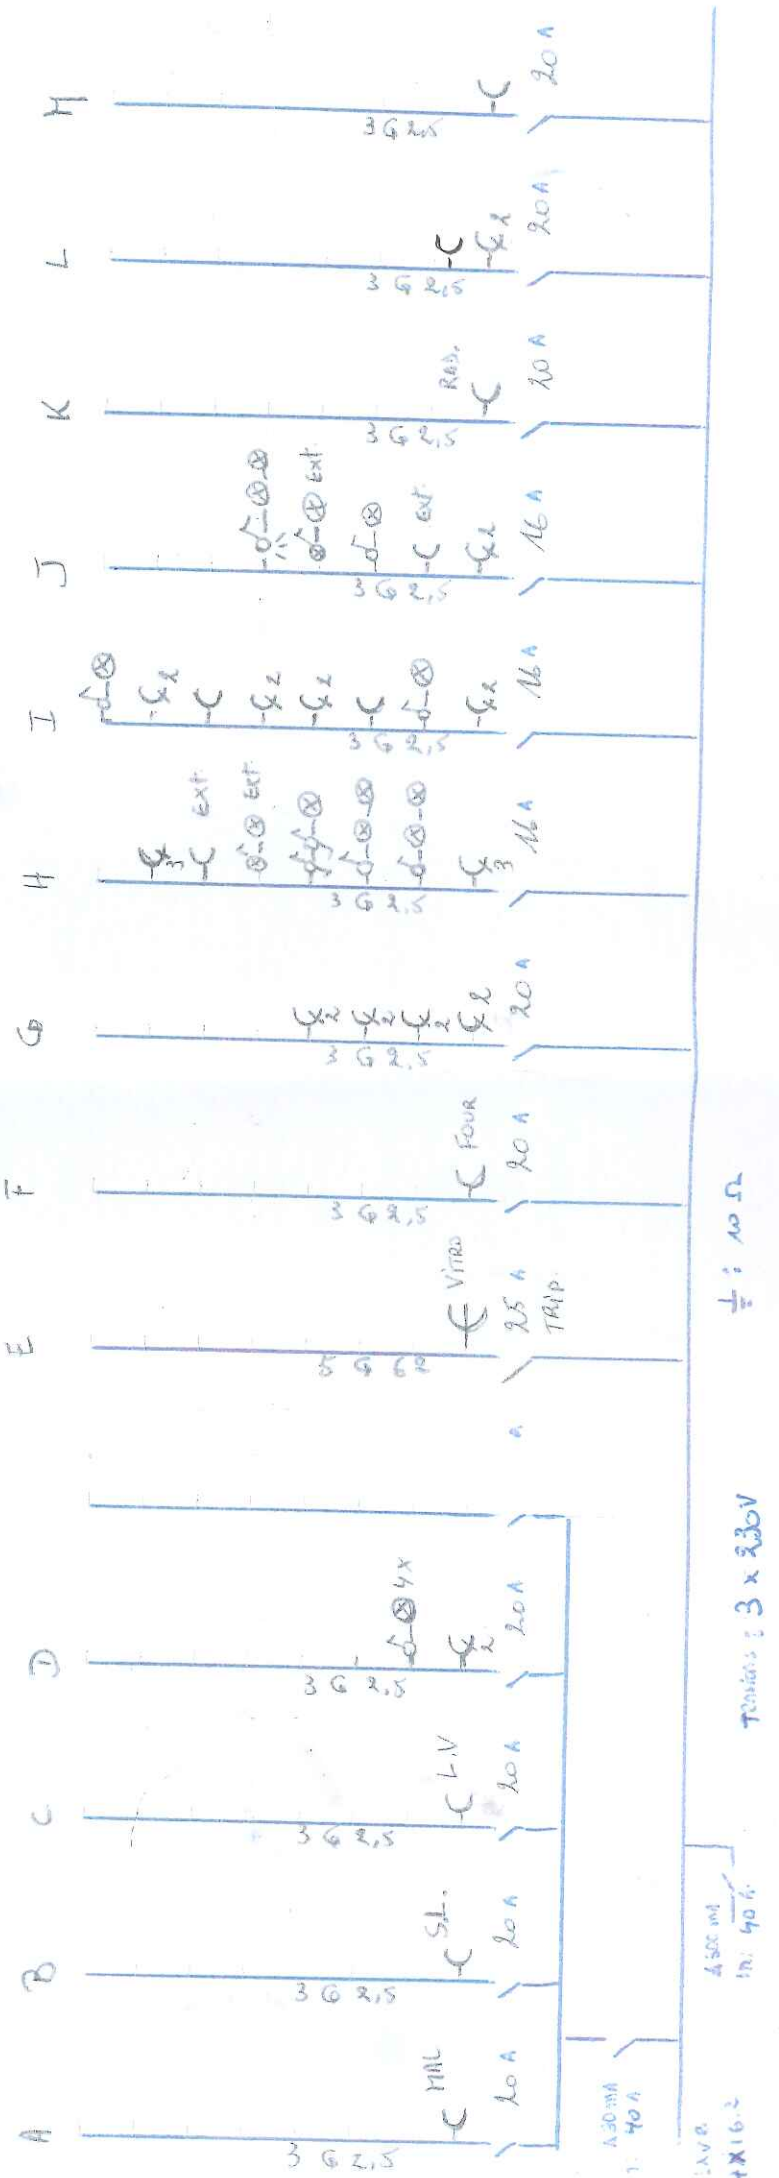 A
3 G 2,5
MAL
20 A
B
3 G 2,5
S.L.
20 A
C
3 G 2,5
L.V
20 A
D
3 G 2,5
4x
2
20 A
A
E
5 G 6
VITRO
25 A
TRIP.
F
3 G 2,5
FOUR
20 A
G
3 G 2,5
2
2
2
2
20 A
H
3 G 2,5
3
Ext.
Ext.
3
16 A
I
3 G 2,5
2
2
2
2
16 A
J
3 G 2,5
Ext.
Ext.
2
16 A
K
3 G 2,5
RAD.
20 A
L
3 G 2,5
2
20 A
M
3 G 2,5
20 A
Δ30mA
40 A
Δ300 mA
In: 40 A.
Tension: 3 x 230V
: 10 Ω